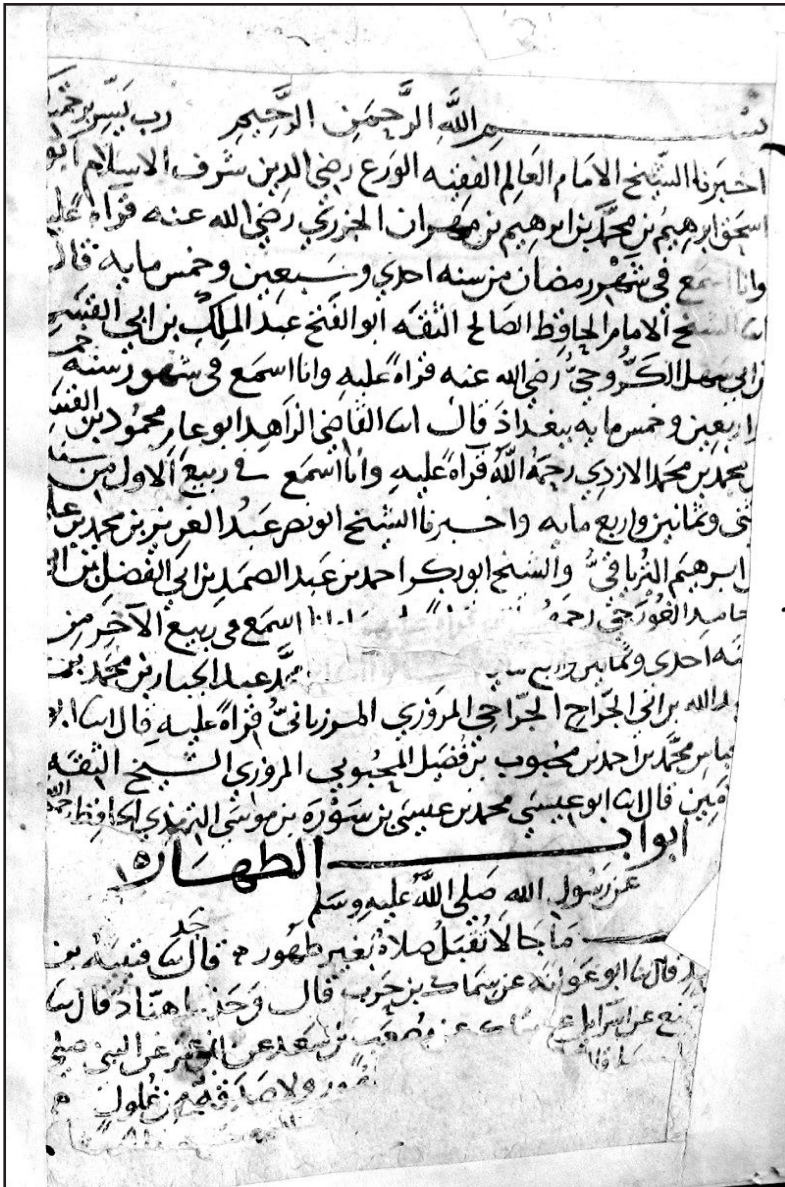 بسم الله الرحمن الرحيم رب يسر برحمتك
اخبرنا الشيخ الامام العالم الفقيه الورع رضي الدين شرف الاسلام ابو
اسحق ابرهيم بن محمد بن ابرهيم بن مهران الجزري رضي الله عنه قراة عليه
وانا اسمع في شهر رمضان من سنه احدي وسبعين وخمس مايه قال
انا الشيخ الامام الحافظ الصالح الثقه ابو الفتح عبد الملك بن ابي القسم
بن ابي سهل الكروجي رضي الله عنه قراة عليه وانا اسمع في شهور سنه
اربعين وخمس مايه ببغداذ قال انا القاضي الزاهد ابو عامر محمود بن القسم
بن محمد بن محمد الازدي رحمه الله قراة عليه وانا اسمع في ربيع الاول من سنه
ثنتي وثمانين واربع مايه واخبرنا الشيخ ابو نصر عبد العزيز بن محمد بن علي
بن ابرهيم الترياقي والشيخ ابو بكر احمد بن عبد الصمد بن ابي الفضل بن ابي
حامد الغورجي رحمه اسمع في ربيع الآخر من
سنه احدي وثمانين واربع مايه محمد عبد الجبار بن محمد بن
عبد الله بن ابي الجراح الجراحي المروزي المرزباني قراة عليه قال انا ابو
العباس محمد بن احمد بن محبوب بن فضيل المحبوبي المروزي الشيخ الثقه
الامين قال انا ابو عيسي محمد بن عيسي بن سورة بن موسي الترمذي الحافظ رحمه الله
ابواب الطهارة
عن رسول الله صلى الله عليه وسلم
ما جا لا تقبل صلاة بغير طهور قال حدثنا قتيبه بن
سعيد قال نا ابو عوانه عن سماك بن حرب قال وحدثنا هناد قال نا
وكيع عن اسرايل عن سماك عن مصعب بن سعد عن ابن عمر عن النبي صلى
طهور ولا صدقة من غلول